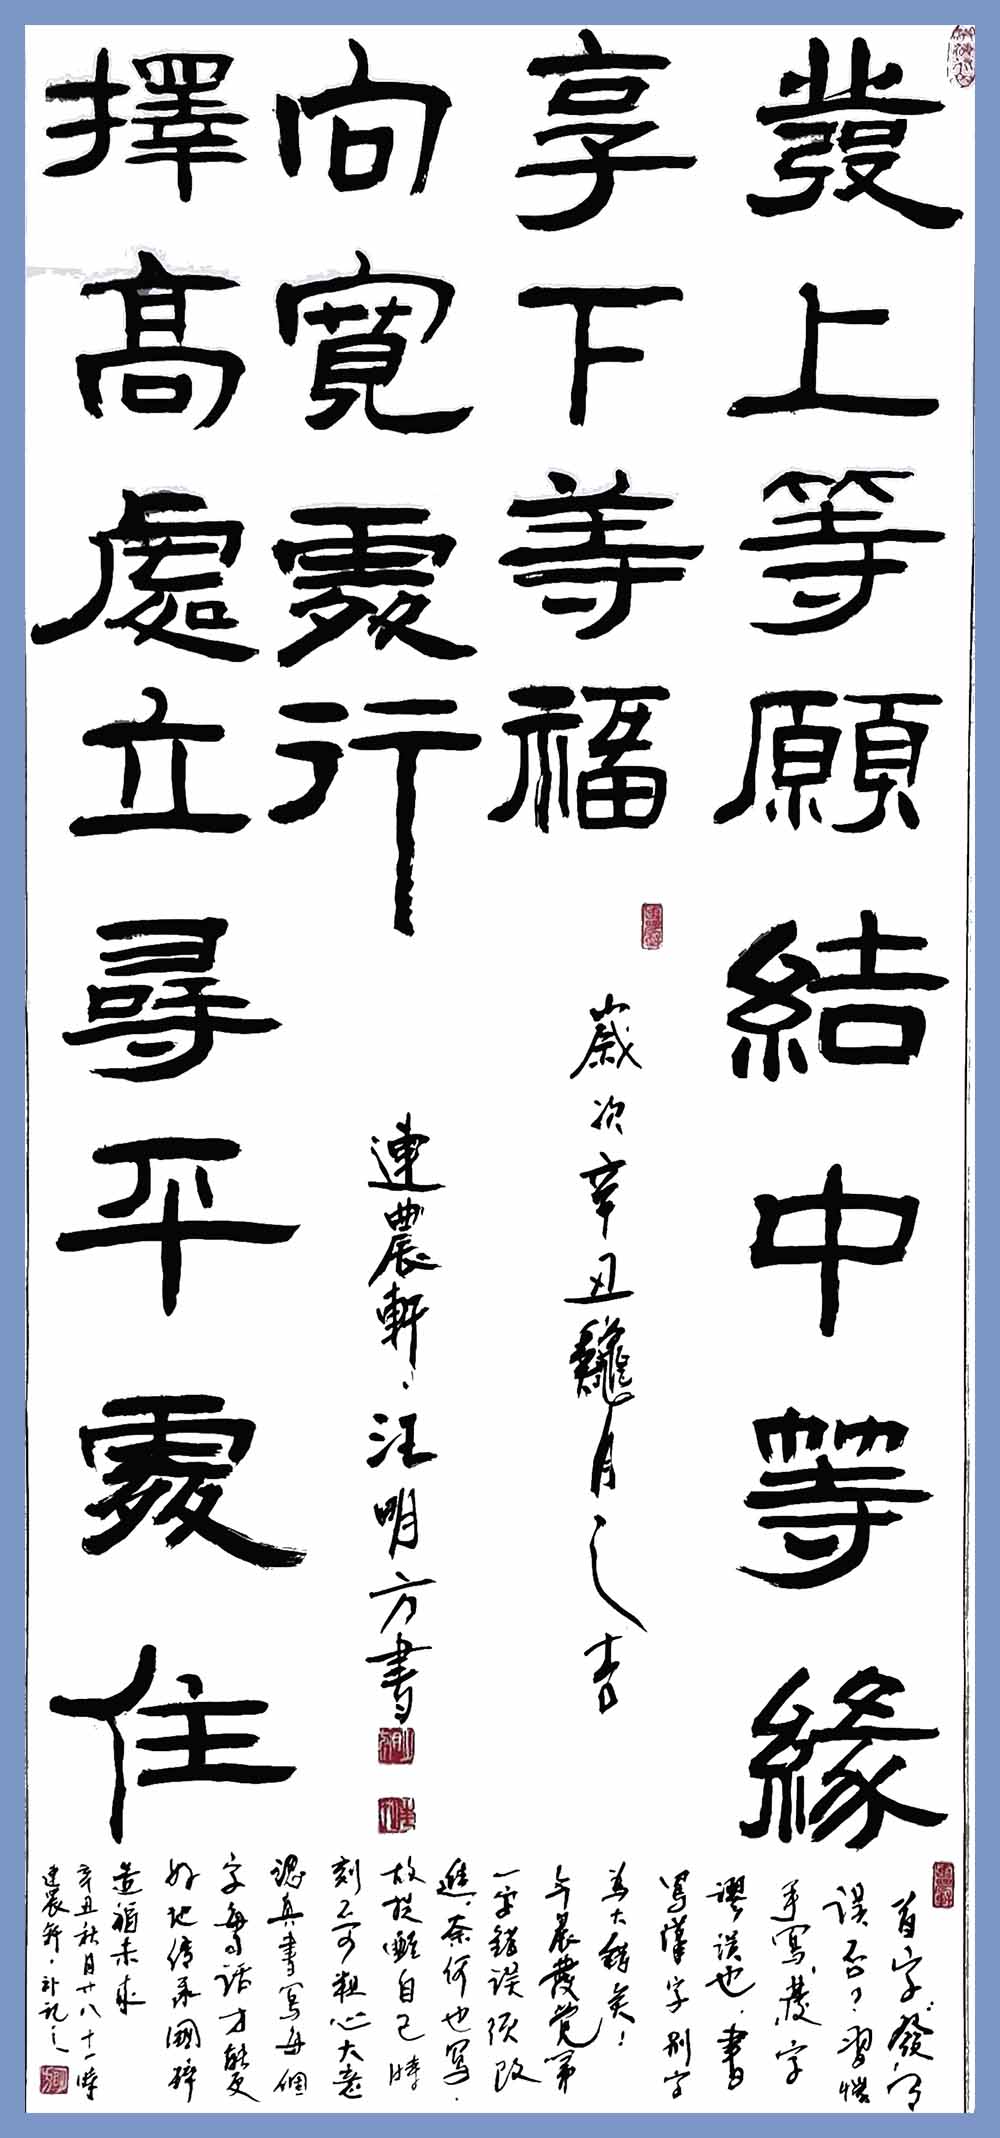 發上等願結中等緣
享下等福
歲次辛丑龝月之吉
向寬處行
連農軒、汪明方書
擇高處立尋平處住
首字:發有
误否?習慣
手寫、發字
謬误也.書
寫漢字别字
為大錯矣!
今晨發觉第
一字錯误须改
進.奈何也写.
故提醒自己時
刻不可粗心大意
認真書寫每個
字每句话才能更
好地传承國粹
造福未来
辛丑秋月廿八十一時
連農軒.补記之